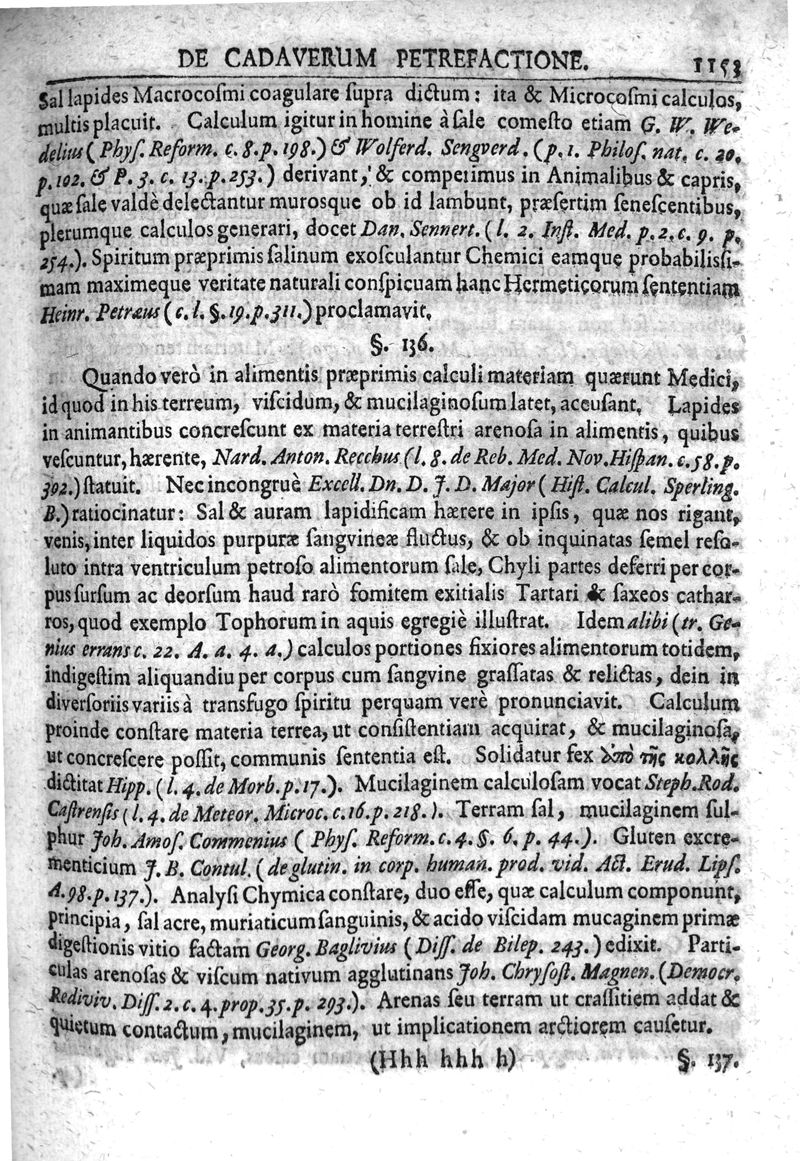 DE CADAVERUM PETREFACTIONE. 1153
Sal lapides Macrocoſmi coagulare ſupra dictum: ita & Microcoſmi calculos,
multis placuit. Calculum igitur in homine à ſale comeſto etiam G. W. We-
delius (Phyſ. Reform. c. 8. p. 198.) & Wolferd. Sengverd. (p. 1. Philoſ. nat. c. 20.
p. 102. & P. 3. c. 13. p. 253.) derivant, & comperimus in Animalibus & capris,
quæ ſale valdè delectantur murosque ob id lambunt, præſertim ſeneſcentibus,
plerumque calculos generari, docet Dan. Sennert. (l. 2. Inſt. Med. p. 2. c. 9. p.
254.). Spiritum præprimis ſalinum exoſculantur Chemici eamque probabiliſſi-
mam maximeque veritate naturali conſpicuam hanc Hermeticorum ſententiam
Heinr. Petræus (c. l. §. 19. p. 311.) proclamavit.
§. 136.
Quando verò in alimentis præprimis calculi materiam quærunt Medici,
id quod in his terreum, viſcidum, & mucilaginoſum latet, accuſant. Lapides
in animantibus concreſcunt ex materia terreſtri arenoſa in alimentis, quibus
veſcuntur, hærente, Nard. Anton. Recchus (l. 8. de Reb. Med. Nov. Hiſpan. c. 58. p.
302.) ſtatuit. Nec incongruè Excell. Dn. D. J. D. Major (Hiſt. Calcul. Sperling.
B.) ratiocinatur: Sal & auram lapidificam hærere in ipſis, quæ nos rigant,
venis, inter liquidos purpuræ ſangvineæ fluctus, & ob inquinatas ſemel reſo-
luto intra ventriculum petroſo alimentorum ſale, Chyli partes deferri per cor-
pus ſurſum ac deorſum haud rarò fomitem exitialis Tartari & ſaxeos cathar-
ros, quod exemplo Tophorum in aquis egregiè illuſtrat. Idem alibi (tr. Ge-
nius errans c. 22. A. a. 4. a.) calculos portiones fixiores alimentorum totidem,
indigeſtim aliquandiu per corpus cum ſangvine graſſatas & relictas, dein in
diverſoriis variis à transfugo ſpiritu perquam verè pronunciavit. Calculum
proinde conſtare materia terrea, ut conſiſtentiam acquirat, & mucilaginoſa,
ut concreſcere poſſit, communis ſententia eſt. Solidatur fex ὑπὸ τῆς κολλῆς
dictitat Hipp. (l. 4. de Morb. p. 17.). Mucilaginem calculoſam vocat Steph. Rod.
Caſtrenſis (l. 4. de Meteor. Microc. c. 16. p. 218.). Terram ſal, mucilaginem ſul-
phur Joh. Amoſ. Commenius (Phyſ. Reform. c. 4. §. 6. p. 44.). Gluten excre-
menticium J. B. Contul. (de glutin. in corp. human. prod. vid. Act. Erud. Lipſ.
A. 98. p. 137.). Analyſi Chymica conſtare, duo eſſe, quæ calculum componunt,
principia, ſal acre, muriaticum ſanguinis, & acido viſcidam mucaginem primæ
digeſtionis vitio factam Georg. Baglivius (Diſſ. de Bile p. 243.) edixit. Parti-
culas arenoſas & viſcum nativum agglutinans Joh. Chryſoſt. Magnen. (Democr.
Rediviv. Diſſ. 2. c. 4. prop. 35. p. 293.). Arenas ſeu terram ut craſſitiem addat &
quietum contactum, mucilaginem, ut implicationem arctiorem cauſetur.
(Hhh hhh h) §. 137.